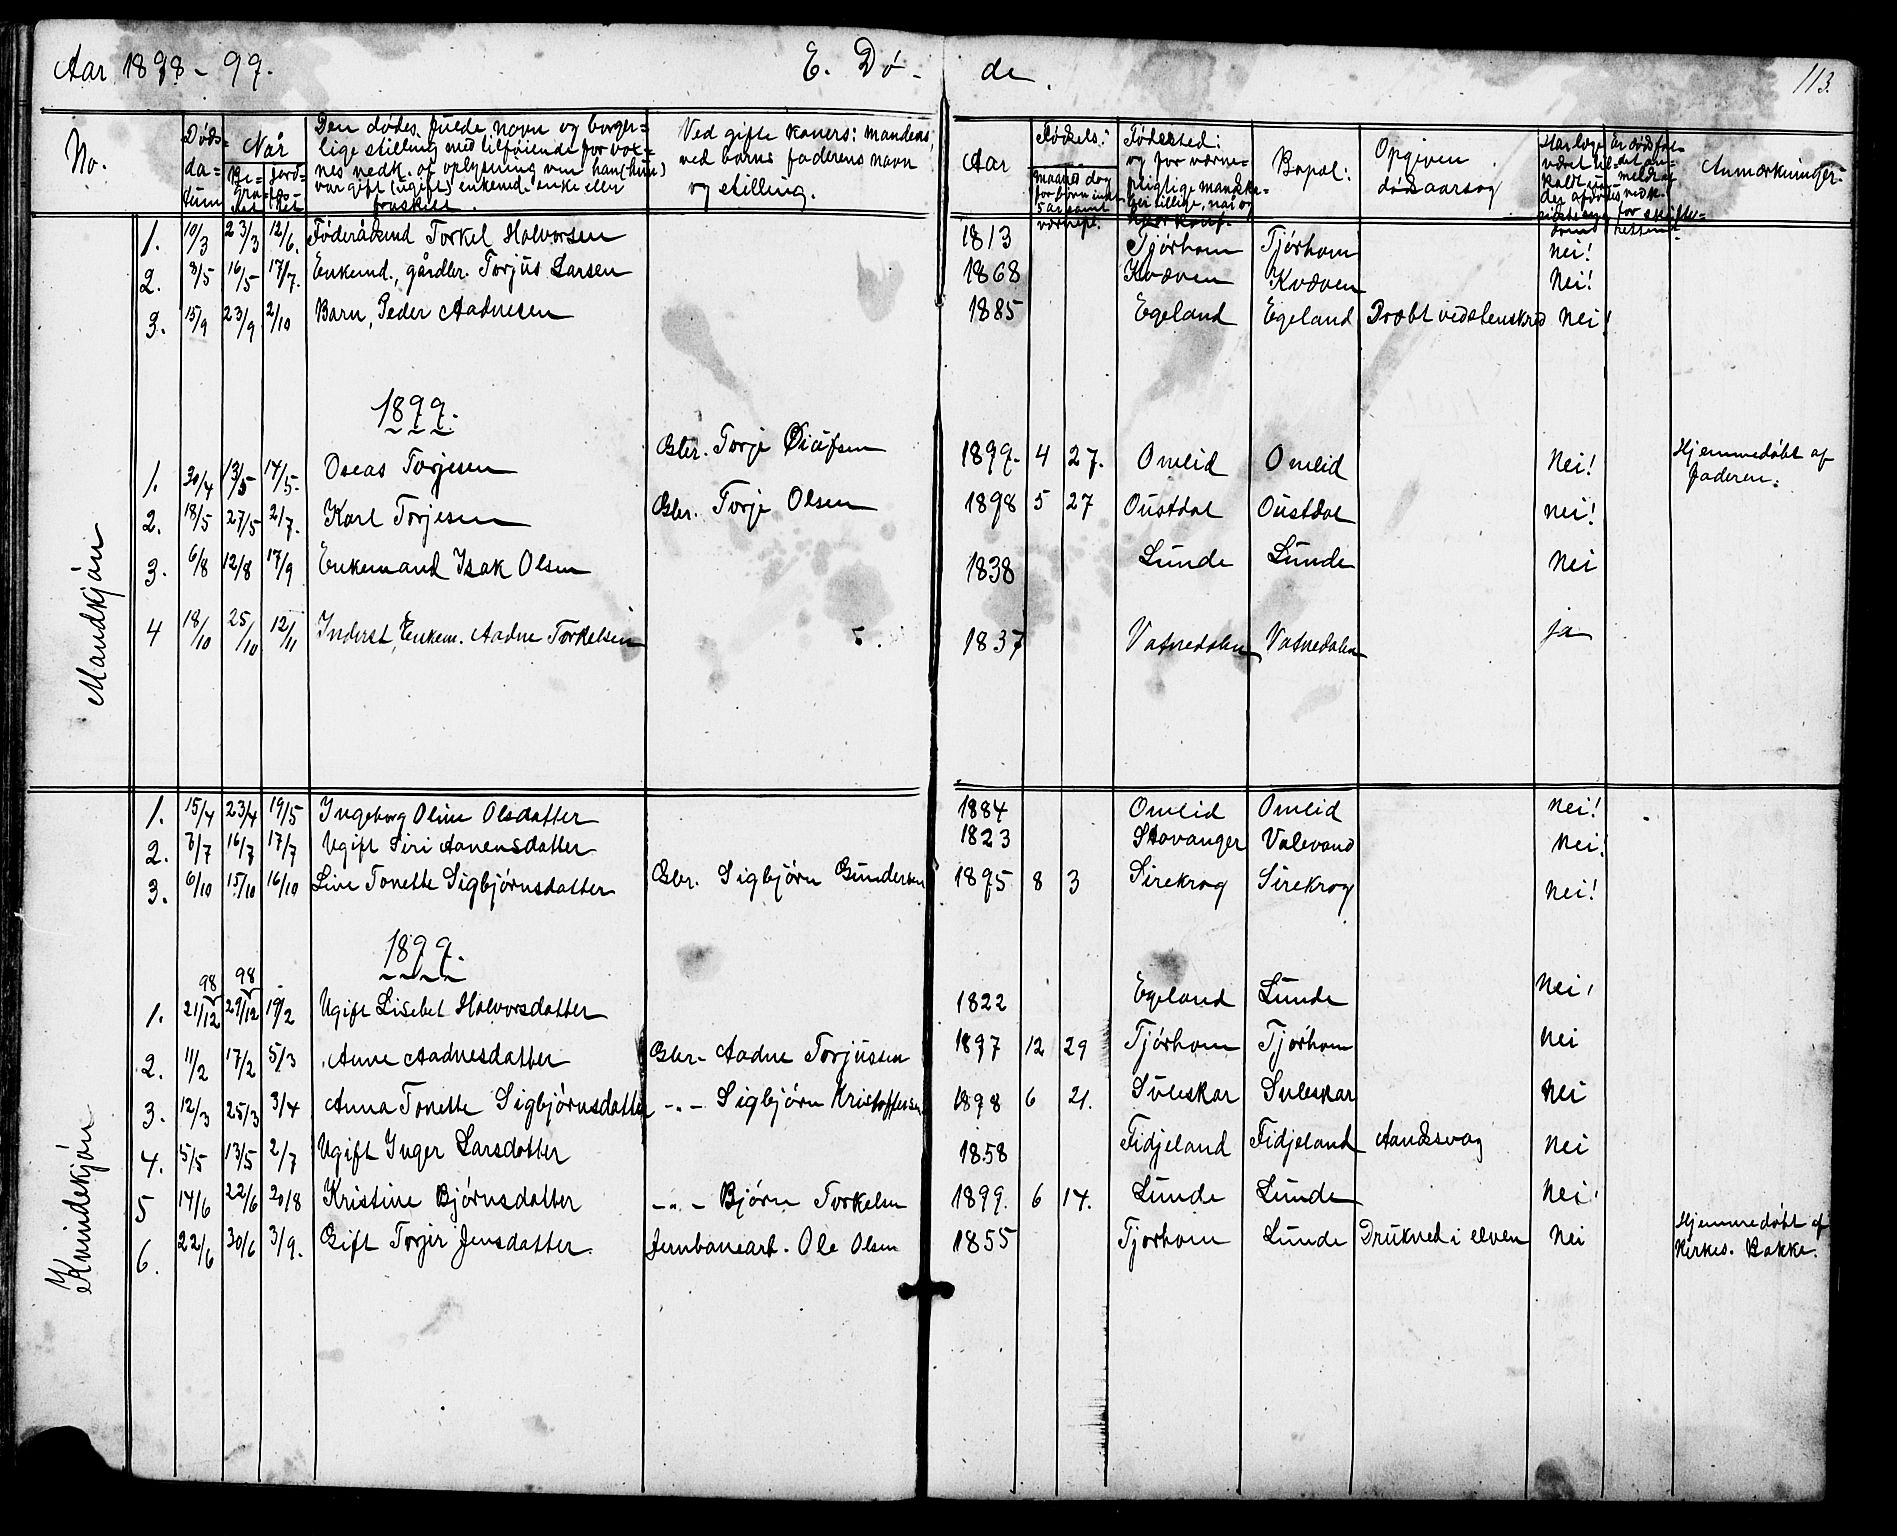 Aar 1898-99. E. Dø- de. 113.
No.
Døds-
da-
tum
Når
Be-
gra-
vet
jord-
fæstet
Den dødes fulde navn og borger-
lige stilling med tilføiende for vox-
nes vedk. af oplysning om han (hun)
var gift (ugift) enkemd. enke eller
fraskilt.
Ved gifte koners: mandens,
ved barns faderens navn
og stilling.
Fødsels:
Aar
maaned dag
for børn indt.
5 år samt
værnepl.
Fødested:
og for værne-
pligtige mandska-
ber tillige, når og
hvor konf.
Bopæl:
Opgiven
dødsaarsag
Har læge
været til-
kaldt un-
der
Er dødsfal-
det an-
meldt
vedk.
for skifte-
retten
Anmærkninger:
Mandkjøn
1. 10/3 23/3 12/6. Føderådsmd Torkel Halvorsen 1813 Tjørhom Tjørhom Nei!
2. 8/5 16/5 17/7. Enkemd., gårdbr. Torjus Larsen 1868 Kvæven Kvæven Nei!
3. 15/9 23/9 2/10 Barn, Peder Aadnesen 1885 Egeland Egeland Dræbt ved stenskred Nei!
1899.
1. 30/4 13/5 14/5. Oseas Torjesen Gbr. Torje Olafsen 1899. 4 27. Omlid Omlid Nei! Hjemmedøbt af
faderen.
2. 18/5 27/5 2/7. Karl Torjesen Gbr. Torje Olsen 1898 5 27 Oustdal Oustdal Nei!
3. 6/8 12/8 17/9 Enkemand Isak Olsen 1838 Lunde Lunde Nei
4 18/10 25/10 12/11 Inderst, Enkem. Aadne Torkelsen 1837 Vatnedalen Vatnedalen ja
Kvindekjøn
1. 15/4 23/4 19/5 Ingeborg Oline Olsdatter 1884 Omlid Omlid Nei!
2. 8/7 16/7 17/7 Ugift Siri Aanensdatter 1823 Stavanger Valevand Nei!
3. 6/10 15/10 16/10 Live Tonette Sigbjørnsdatter Gbr. Sigbjørn Gundersen 1895 8 3 Sirekrog Sirekrog Nei!
1899.
98 98
1. 21/12 29/12 19/2 Ugift Lisebet Halvorsdatter 1822 Egeland Lunde Nei!
2. 11/2 17/2 5/3 Anne Aadnesdatter Gbr- Aadne Torjussen 1897 12 29 Tjørhom Tjørhom Nei
3. 12/3 25/3 3/4 Anna Tonette Sigbjørnsdatter -"- Sigbjørn Kristoffersen 1898 6 21. Suleskar Suleskar Nei
4. 5/5 13/5 2/7 Ugift Inger Larsdatter 1858 Fidjeland Fidjeland Aandsvag Nei
5 14/6 22/6 20/8 Kristine Bjørnsdatter -"- Bjørn Torkelsen 1899. 6 14. Lunde Lunde Nei!
6. 22/6 30/6 3/9. Gift Torjer Jensdatter. Jernbanearb. Ole Olsen 1855 Tjørhom Lunde Drukned i elven Nei Hjemmedøbt af
Kirkes. Bakke.